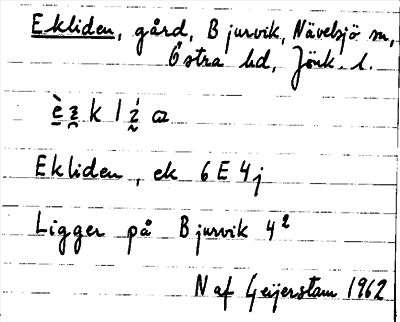 Ekliden, gård, Bjurvik, Nävelsjö sn,
Östra hd, Jönk. l.
Ekliden, ek 6E4j
Ligger på Bjurvik 4²
N af Geijerstam 1962